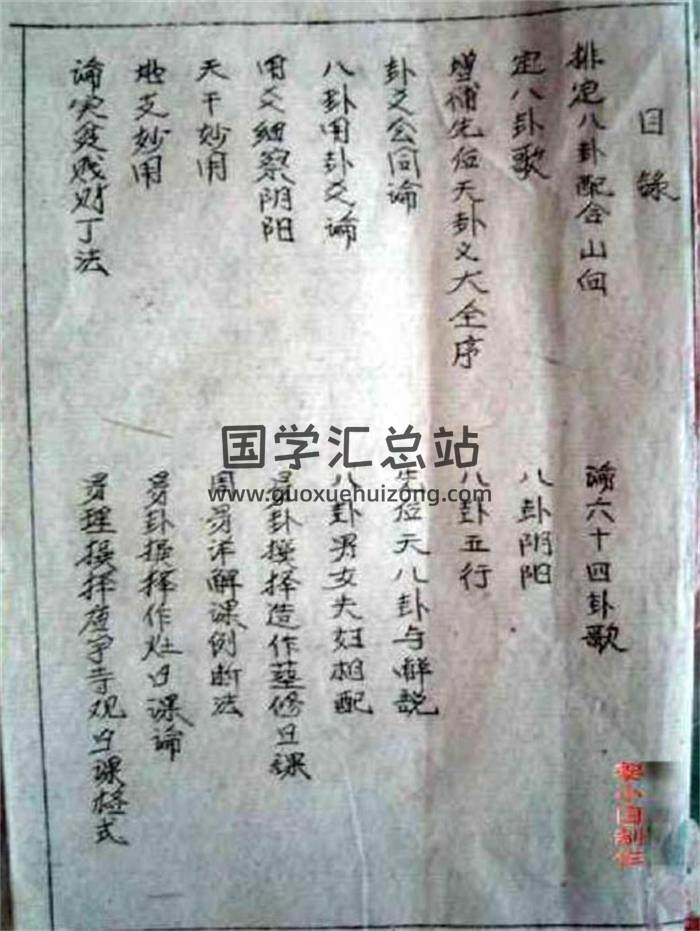 目錄
排定八卦配合山向
論六十四卦歌
定八卦歌
八卦阴阳
增補先位天卦义大全序
八卦五行
卦爻公同論
先位天八卦与解説
八卦用卦爻論
八卦男女夫妇相配
用爻細察阴阳
易卦撰择造作墓修日课
天干妙用
周易详解课例断法
地支妙用
易卦撰择作灶日课論
論灾贫贱财丁法
易理撰择庙宇寺观日课格式
国学汇总站
www.guoxuehuizong.com